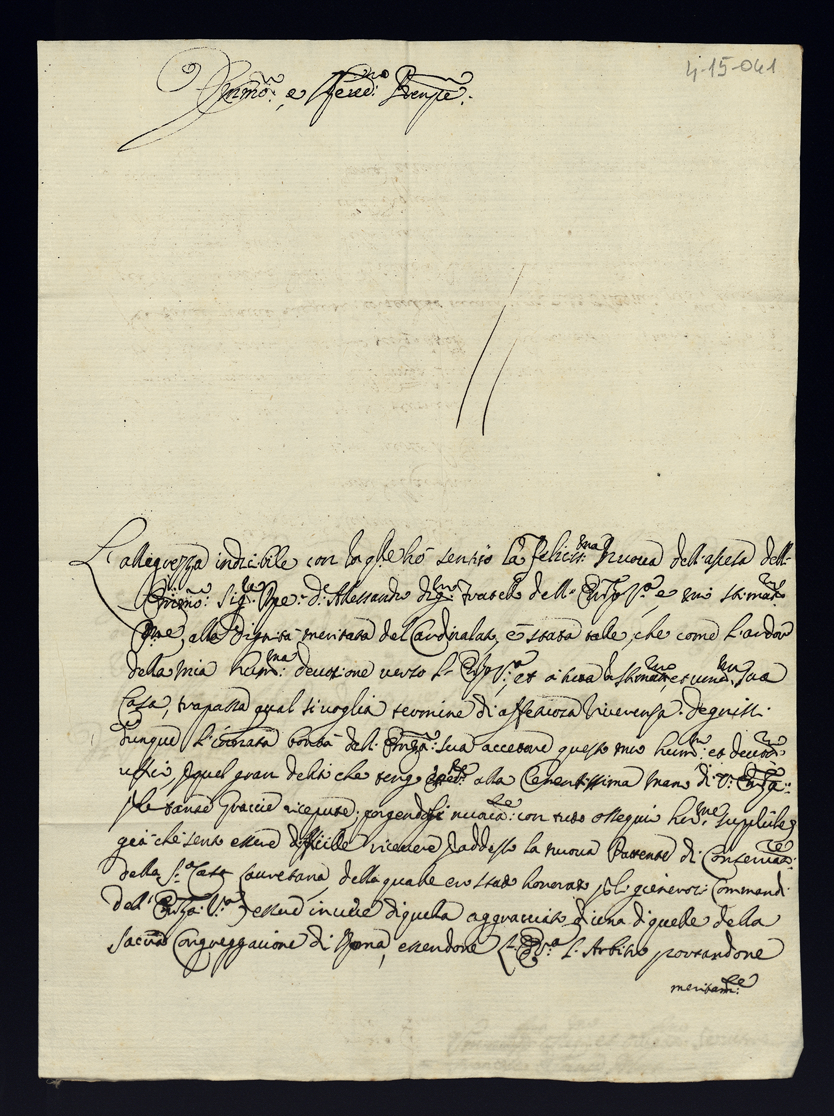 4-15-041
Emmo: e Revd:mo Prenpe:
L'allegrezza indicibile con la qle hò sentito la feliciss:ma nuova dell'ascesa dell
Emmo: Sig:re Pne: D: Alessandro dig:mo fratello dell' Em:za V:a e mio stimat:mo
Pne, alla Dignità meritata del Cardinalato, è stata tale, che come l'ardor
della mia hum:ma devozione verso l' Em: V:a, et
Casa, trapassa qual si voglia termine di affettuosa riverenza. Degnisi
dunque l'innata bontà dell' Emza: sua accettare questo mio hum: et devoto
uffitio, quel gran debito che tengo alla Eminentissima mano di V: Emza:
p le tante grazie ricevute; porgendogli nuova:te con tutto ossequio le supplice
già che sento essere difficile ricevere p adesso la nuova Pattente di Conservat:re
della S:ta Casa Lauretana della quale ero stato honorato p li gienerosi Commandi
dell' Emza: V:a essere in vece di quella aggraciato di una di quelle della
Sacra Congreggazione di Roma, essendone l' E: V:a l'Arbitro portandone
meritam:te